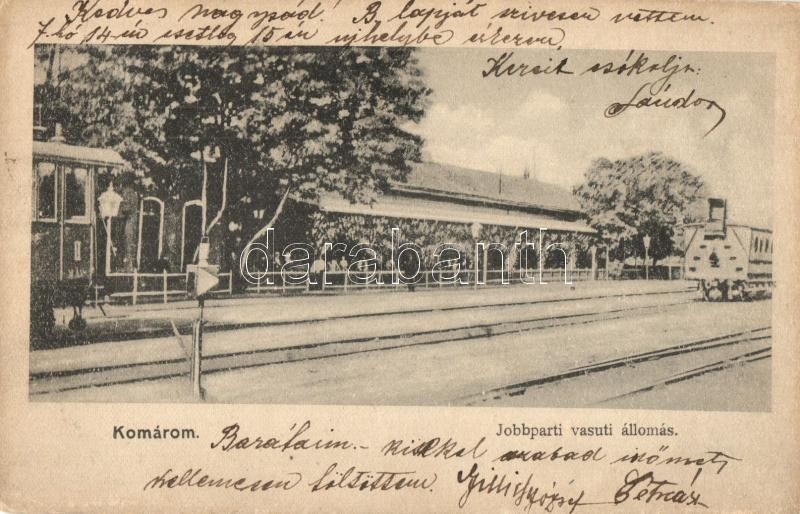 Kedves nagysád! B. lapját szivesen vettem.
7. hó 14-én esetleg 15-én ujhelybe érkezem,
Kezeit csókolja:
Sándor
darabanth
Komárom.
Jobbparti vasuti állomás.
Barátaim - kikkel szabad időmet
kellemesen töltöttem.
József